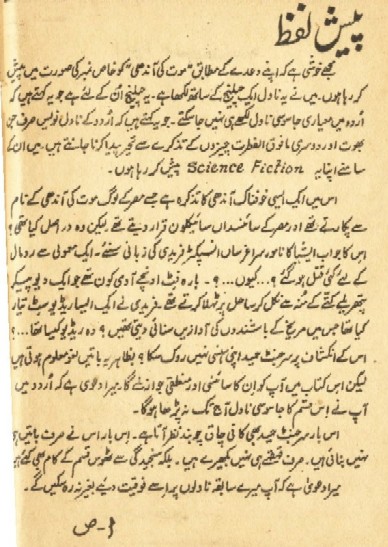 پیش لفظ
مجھے خوشی ہے کہ اپنے وعدے کے مطابق "موت کی آندھی" کو خاص نمبر کی صورت میں پیش
کر رہا ہوں۔ میں نے یہ ناول ایک چیلنج کے ساتھ لکھا ہے۔ یہ چیلنج اُن کے لئے ہے جو یہ کہتے ہیں کہ
اُردو میں معیاری جاسوسی ناول لکھے ہی نہیں جاسکتے۔ جو یہ کہتے ہیں کہ اُردو کے ناول نویس صرف جن
بھوت اور دوسری مافوق الفطرت چیزوں کے تذکرے سے تحیر پیدا کرنا جانتے ہیں، میں ان کے
سامنے اپنا یہ Science Fiction پیش کر رہا ہوں۔
اس میں ایک ایسی خوفناک آندھی کا تذکرہ ہے جسے مصر کے لوگ موت کی آندھی کے نام
سے پکارتے تھے اور مصر کے سائنسداں سائیکلون قرار دیتے تھے لیکن وہ دراصل کیا تھی؟
اس کا جواب ایشیا کا نامور سراغرساں انسپکٹر فریدی کی زبانی سنئے۔ ایک معمولی سے رومال
کے لئے کئی قتل ہو گئے؟ ... کیوں...؟۔ بارہ فٹ اونچے آدمی کون تھے جو ایک دیو پیکر
پتھریلے کتے کے منہ سے نکل کر ساحل پر ٹہلا کرتے تھے۔ فریدی نے ایک ایسا ریڈیو سیٹ تیار
کیا تھا جس میں مریخ کے باشندوں کی آوازیں سنائی دیتی تھیں؟ وہ ریڈیو کیسا تھا...؟
اس کے انکشاف پر سرجنٹ حمید اپنی ہنسی نہیں روک سکا؟ بظاہر یہ باتیں لغو معلوم ہوتی ہیں
لیکن اس کتاب میں آپ کو ان کا سائنسی اور منطقی جواز ملے گا۔ میرا دعویٰ ہے کہ اُردو میں
آپ نے اس قسم کا جاسوسی ناول آج تک نہ پڑھا ہوگا۔
اس بار سرجنٹ حمید بھی کافی چاق چوبند نظر آتا ہے۔ اس بار اس نے صرف باتیں ہی
نہیں بنائی ہیں۔ صرف قہقہے ہی نہیں بکھیرے ہیں۔ بلکہ سنجیدگی سے ٹھوس قسم کے کام بھی کئے ہیں
میرا دعویٰ ہے کہ آپ میرے سابقہ ناولوں پر اسے فوقیت دیئے بغیر نہ رہ سکیں گے۔
ا۔ ص